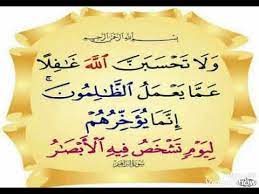 بسم الله الرحمن الرحيم
وَلَا تَحْسَبَنَّ اللَّهَ غَافِلًا
عَمَّا يَعْمَلُ الظَّالِمُونَ ۚ
إِنَّمَا يُؤَخِّرُهُمْ
لِيَوْمٍ تَشْخَصُ فِيهِ الْأَبْصَارُ
سورة ابراهيم